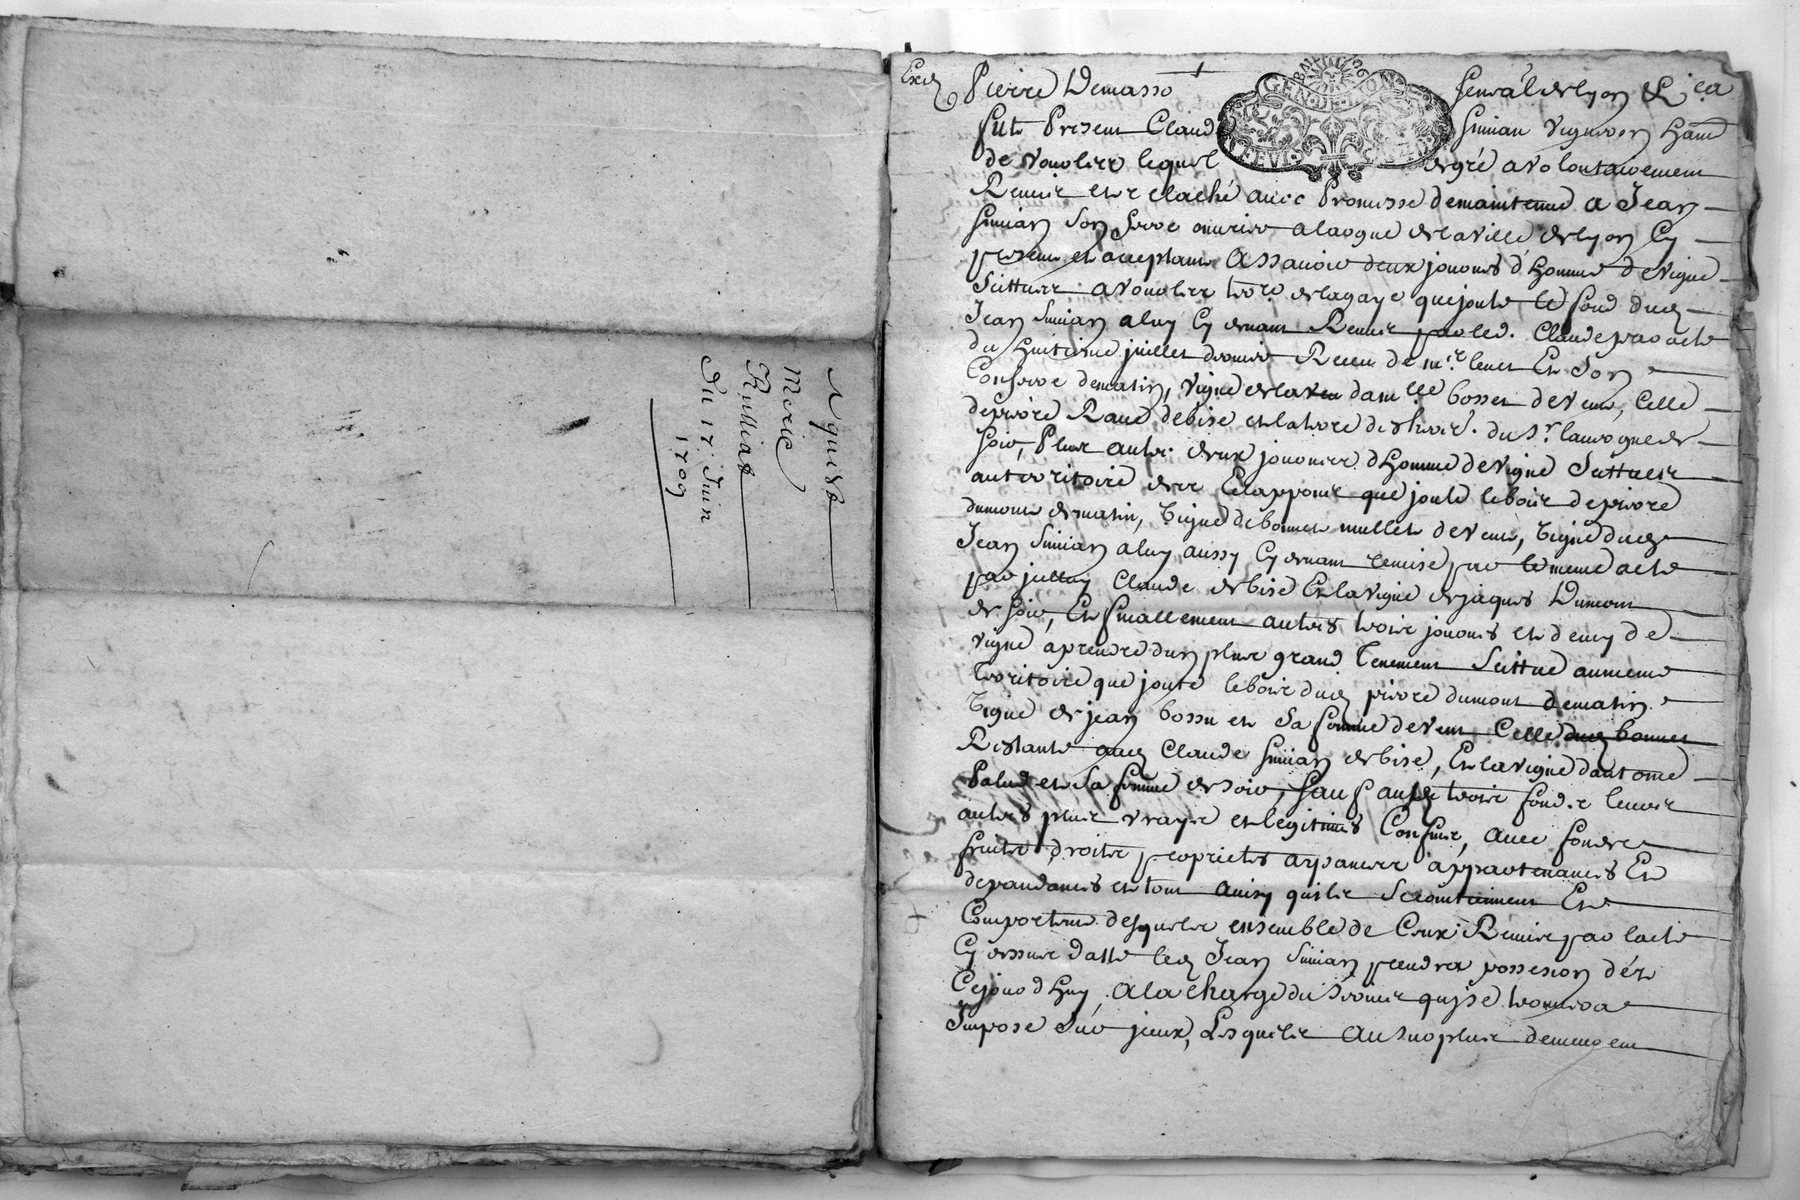 aquist
Meric
Rulliat
du 17 Juin
1709
GEN·DE·LYON
Pierre Demasso
senral de lyon & ca
fut Present Claude Simian vigneron
de vouolier lequel de gré a volontairement
Remis et relaché avec Promesse de maintenue a Jean
Simian son frere ouurier de la ville de lyon cy
present et acceptant assauoir deux journes d'homme de vigne
scittuee a vouolier que joute le fond dud
Jean Simian a luy cy deuant Remis par led. Claude par acte
du huitieme juillet dernier Receu de mr. Et son
de matin, vigne de la dam lle bosset de vent, celle
de pierre Raud de bise et la terre du Sr
soir, Plus autre deux journee d'homme de vigne scittuee
au territoire que joute le bois de pierre
dumont de matin, vigne de bonnet mullet de vent, vigne dud
Jean Simian a luy aussy cy deuant remise par le meme acte
par Claude de bise Et la vigne de jaques Dumont
de soir, Et finallement autres trois journes et demy de
vigne a prendre d'un plus grand tenement scittué au meme
territoire que joute le bois dud pierre dumont de matin
vigne de jean bossu et sa femme de vent celle dud bonnet
Restante aud Claude Simian de bise, Et la vigne d'antome
Palud et sa femme de soir, sauf trois fonds leurs
autres plus vrays et legitimes Confins, auec fonds
fruits droits proprietes apartenances Et
dependances et tout ainsy quils se contiennent Et
Comportent desquels ensemble de Ceux Remis par lacte
Cy dessus datté led Jean Simian prendra possession dés
Cejourdhuy, a la charge du seruis qu'il se trouuera
Imposé sur jceux, Lesquels au surplus demeurent